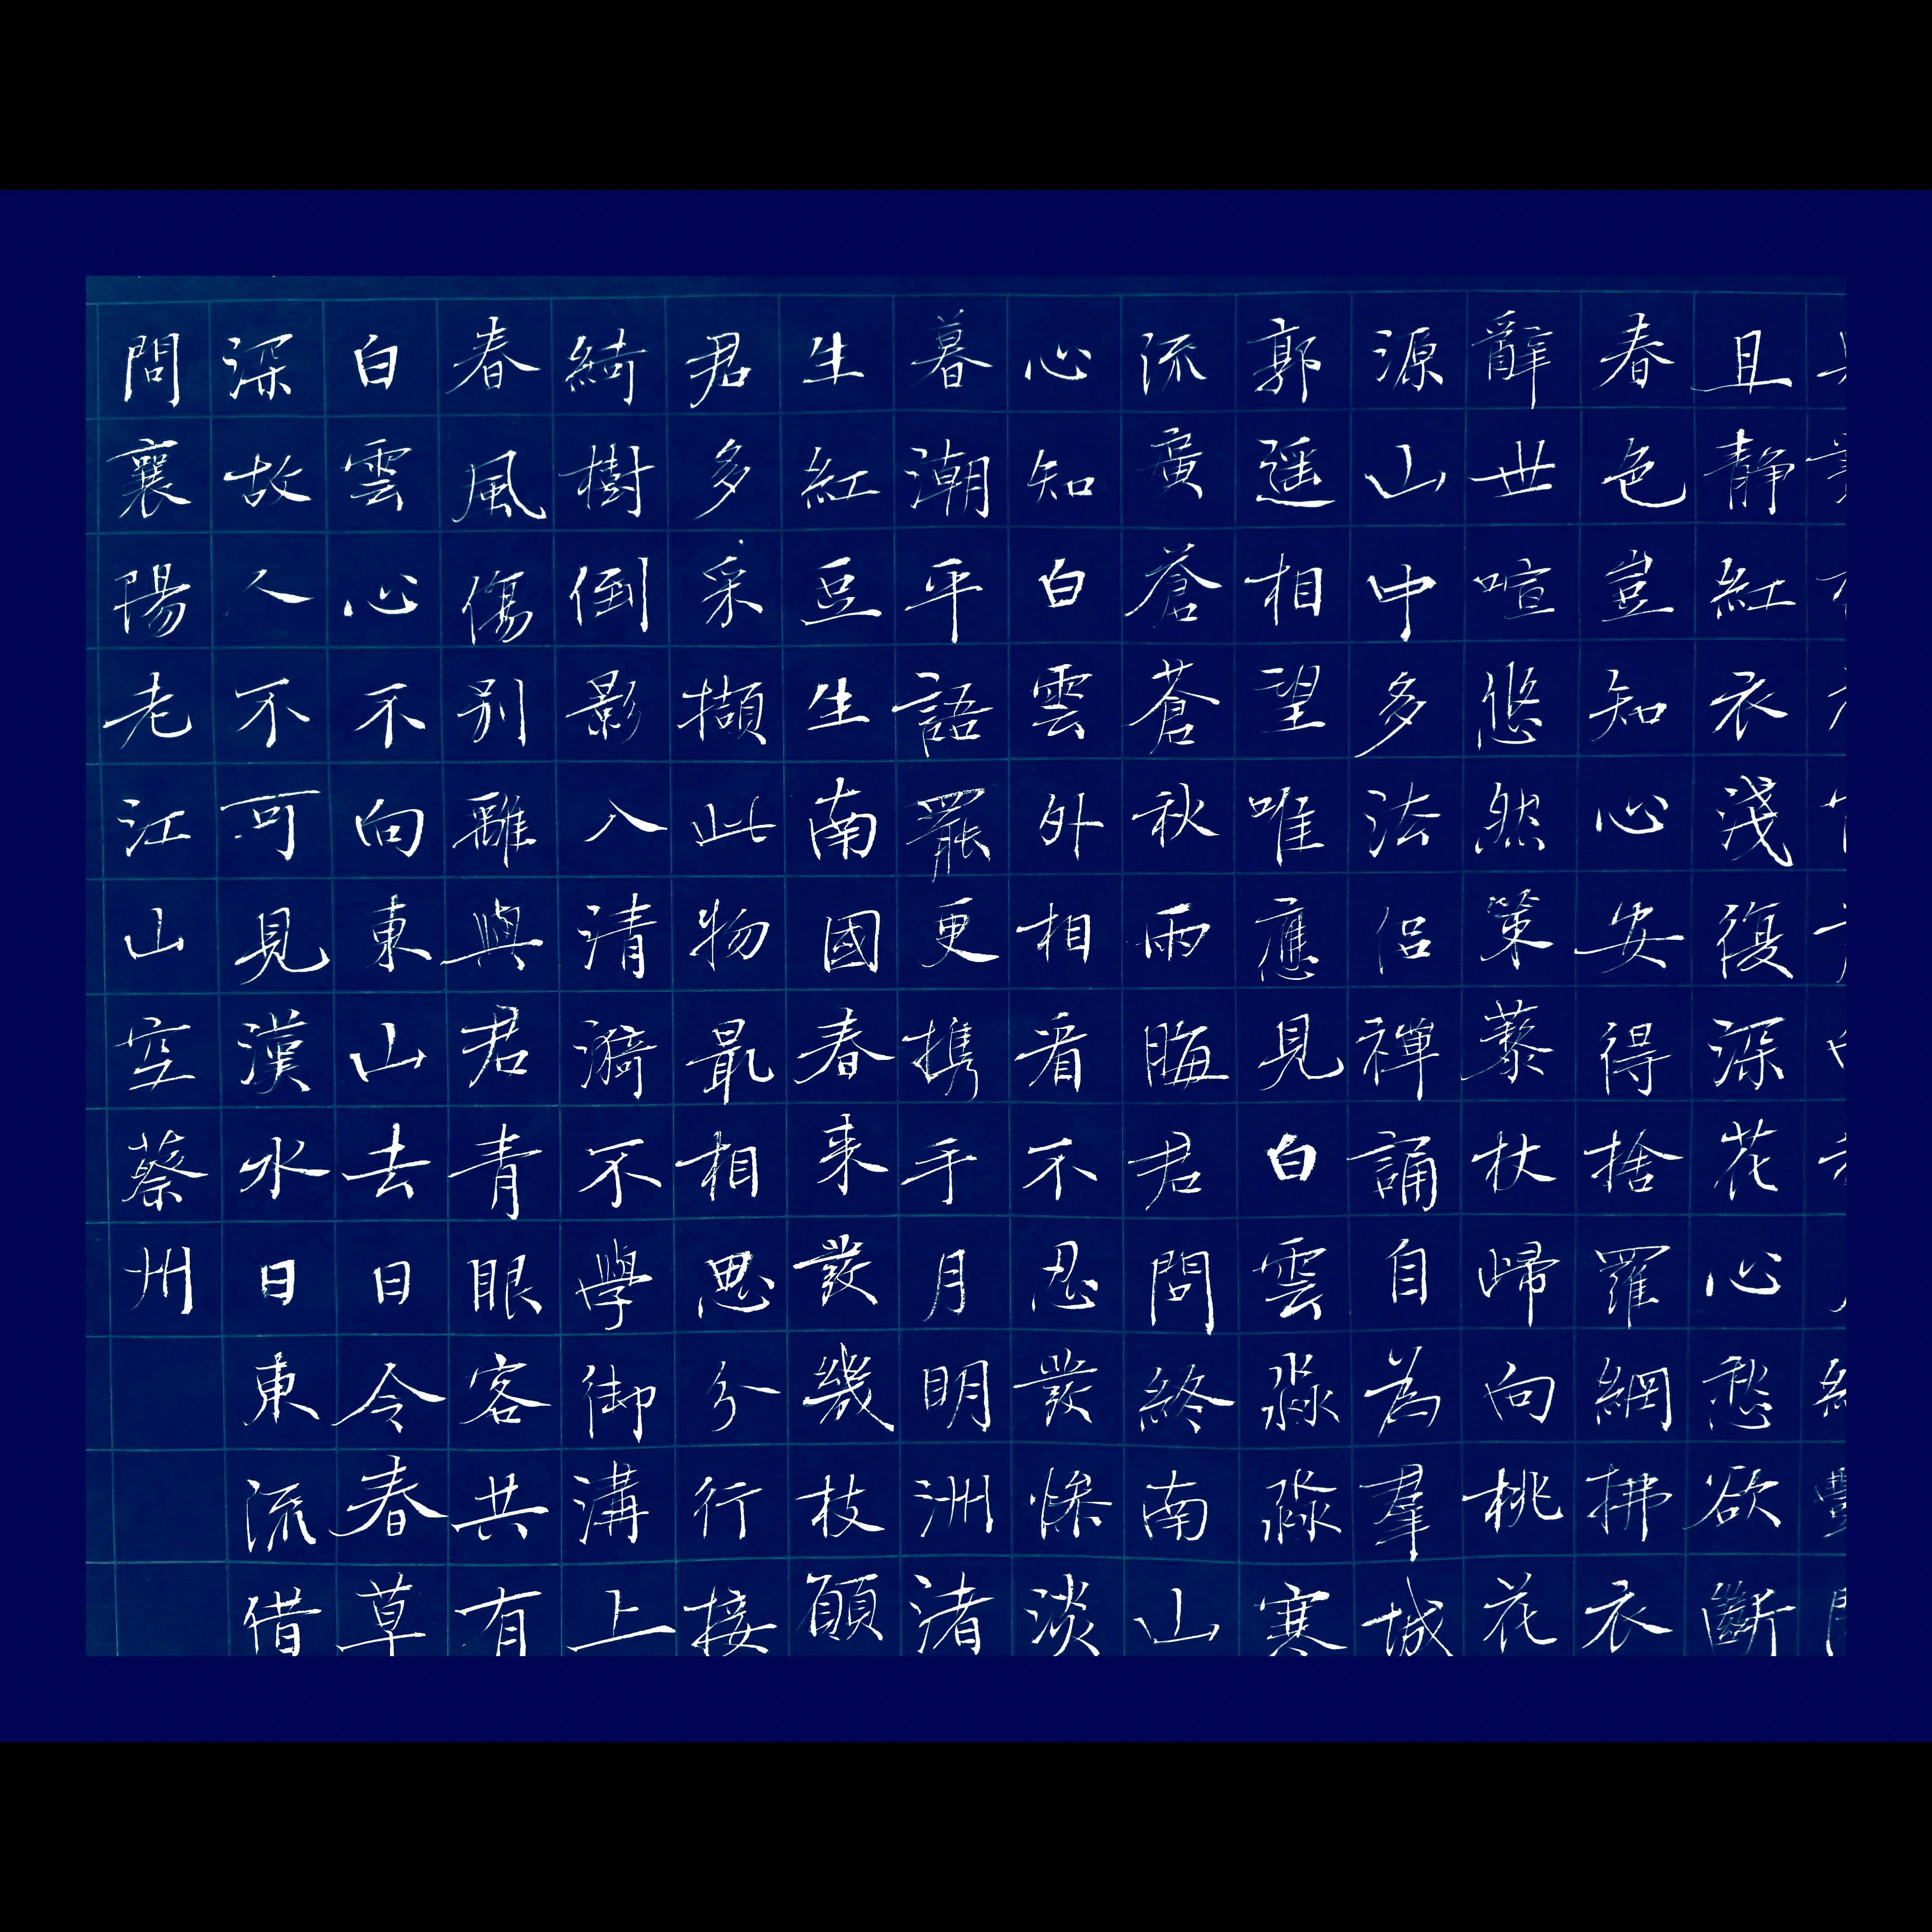 且静紅衣淺復深花心愁欲斷
春色豈知心安得捨羅網拂衣
辭世喧悠然策藜杖歸向桃花
源山中多法侶禪誦自為羣城
郭遥相望唯應見白雲淼淼寒
流廣蒼蒼秋雨晦君問終南山
心知白雲外相看不忍發慘淡
暮潮平語罷更携手月明洲渚
生紅豆生南國春来發幾枝願
君多采擷此物最相思分行接
綺樹倒影入清漪不學御溝上
春風傷别離與君青眼客共有
白雲心不向東山去日令春草
深故人不可見漢水日東流借
問襄陽老江山空蔡州